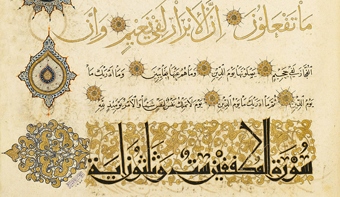 مَا تَفْعَلُونَ إِنَّ الْأَبْرَارَ لَفِي نَعِيمٍ وَإِنَّ
الْفُجَّارَ لَفِي جَحِيمٍ يَصْلَوْنَهَا يَوْمَ الدِّينِ وَمَا هُمْ عَنْهَا بِغَائِبِينَ وَمَا أَدْرَاكَ مَا
يَوْمُ الدِّينِ ثُمَّ مَا أَدْرَاكَ مَا يَوْمُ الدِّينِ يَوْمَ لَا تَمْلِكُ نَفْسٌ لِنَفْسٍ شَيْئًا وَالْأَمْرُ يَوْمَئِذٍ لِلَّهِ
سورة المطففين ست وثلثون اية